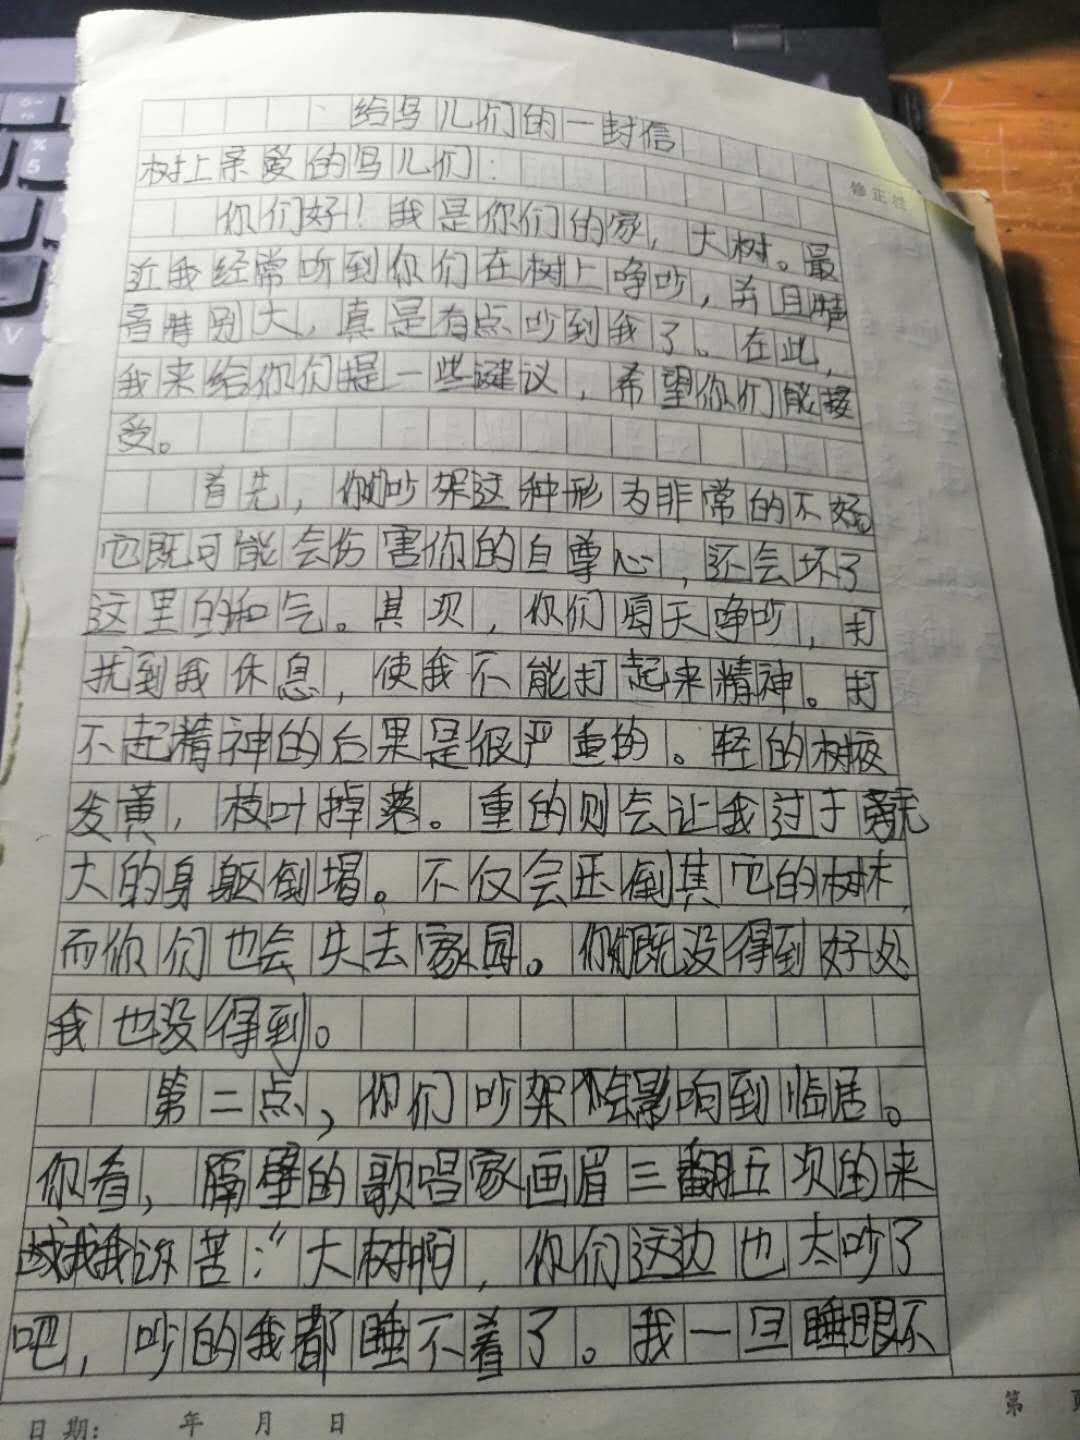 给鸟儿们的一封信
树上亲爱的鸟儿们：
修正栏
你们好！我是你们的家，大树。最
近我经常听到你们在树上争吵，并且声
音特别大，真是有点吵到我了。在此，
我来给你们提一些建议，希望你们能接
受。
首先，你们吵架这种形为非常的不好
它既可能会伤害你的自尊心，还会坏了
这里的和气。其次，你们每天争吵，打
扰到我休息，使我不能打起来精神。打
不起精神的后果是很严重的。轻的树
发黄，枝叶掉落。重的则会让我过于
大的身躯倒塌。不仅会压倒其它的树木，
而你们也会失去家园。你们既没得到好处
我也没得到。
第二点，你们吵架还会影响到临居。
你看，隔壁的歌唱家画眉三翻五次的来
找我诉苦：“大树啊，你们这边也太吵了
吧，吵的我都睡不着了。我一旦睡眠不
日期： 年 月 日
第 页